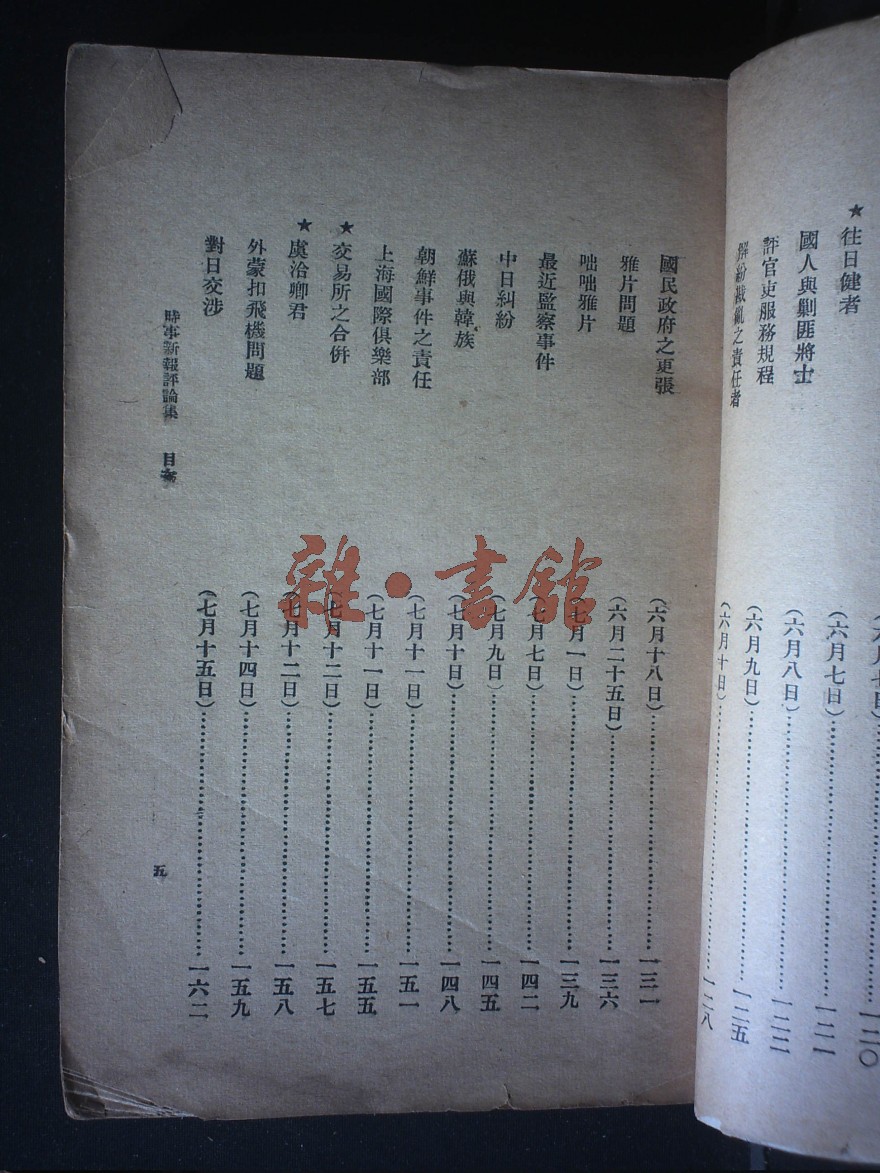 一二〇
★往日健者（六月七日）……一二一
國人與剿匪將士（六月八日）……一二二
評官吏服務規程（六月九日）……一二五
解紛亂之責任者（六月十日）……一二八
國民政府之更張（六月十八日）……一三一
雅片問題（六月二十五日）……一三六
咄咄雅片（七月一日）……一三九
最近監察事件（七月七日）……一四二
中日糾紛（七月九日）……一四五
蘇俄與韓族（七月十日）……一四八
朝鮮事件之責任（七月十一日）……一五一
上海國際俱樂部（七月十一日）……一五五
★交易所之合併（七月十二日）……一五七
★虞洽卿君（七月十二日）……一五八
外蒙扣飛機問題（七月十四日）……一五九
對日交涉（七月十五日）……一六二
時事新報評論集 目次 五
雜·書舘